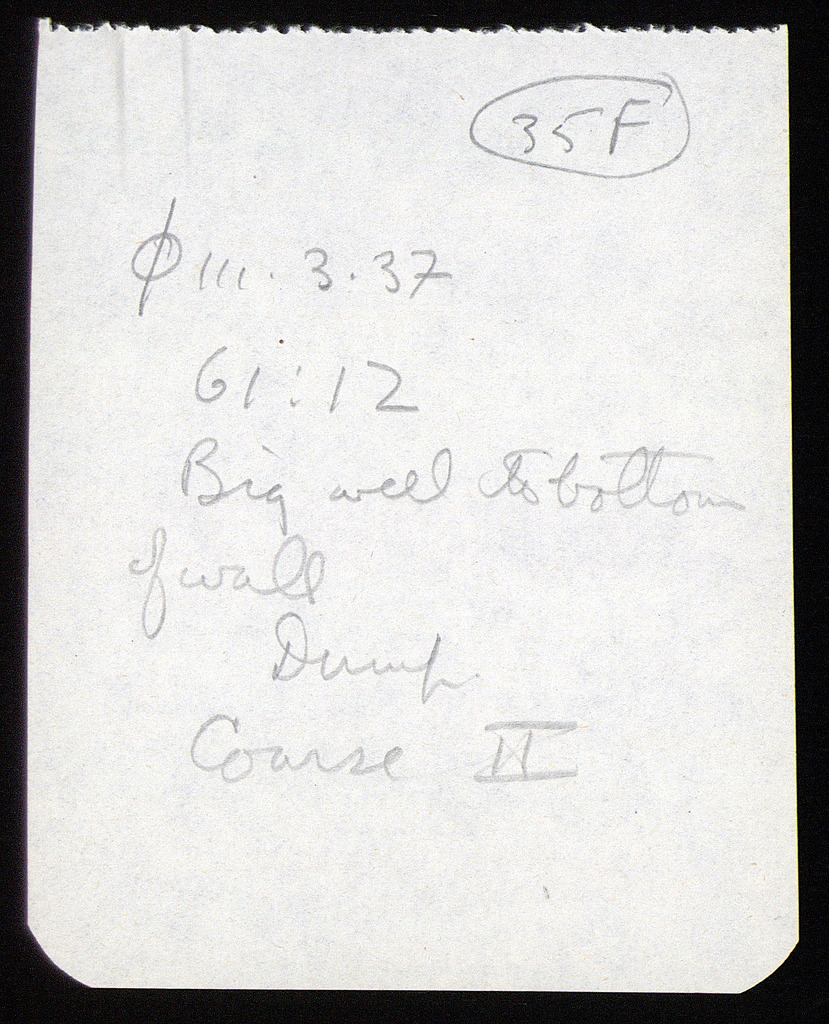 35F
φ III. 3.37
61:12
Big well to bottom
of wall
Dump
Coarse II